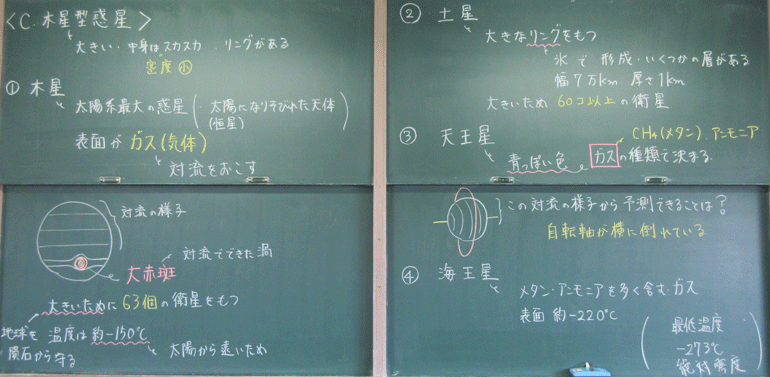 <C. 木星型惑星>
大きい・中身はスカスカ・リングがある
密度小
① 木星
太陽系最大の惑星(・太陽になりそびれた天体)
(恒星)
表面がガス(気体)
対流をおこす
対流の様子
対流でできた渦
大赤斑
大きいために63個の衛星をもつ
地球を
隕石から守る
温度は約-150℃
太陽から遠いため
② 土星
大きなリングをもつ
氷で形成・いくつかの層がある
幅7万km 厚さ1km
大きいため 60コ以上の衛星
③ 天王星
CH4(メタン)・アンモニア
青っぽい色
ガスの種類で決まる
この対流の様子から予測できることは?
自転軸が横に倒れている
④ 海王星
メタン・アンモニアを多く含むガス
表面 約-220℃
最低温度
-273℃
絶対